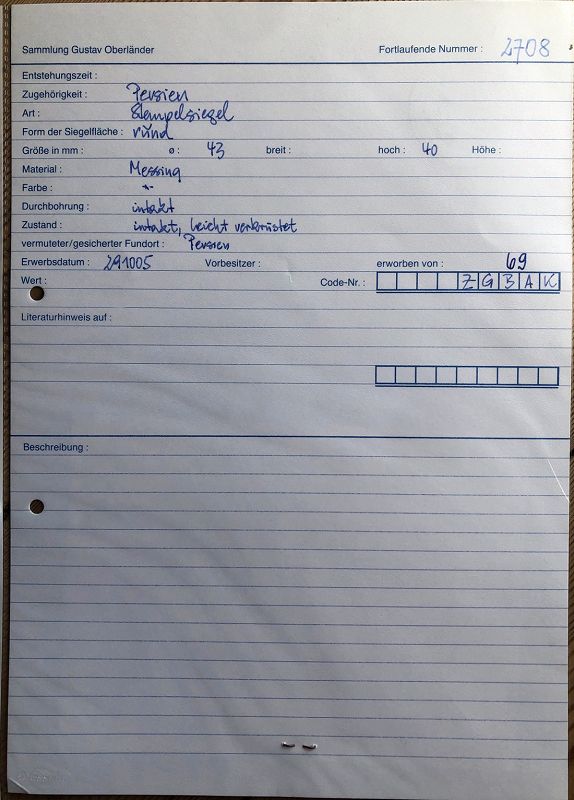 Sammlung Gustav Oberländer Fortlaufende Nummer : 2708
Entstehungszeit :
Zugehörigkeit : Persien
Art : Stempelsiegel
Form der Siegelfläche : rund
Größe in mm : ø : 43 breit : hoch : 40 Höhe :
Material : Messing
Farbe :
Durchbohrung : intakt
Zustand : intakt, leicht verkrustet
vermuteter/gesicherter Fundort : Persien
Erwerbsdatum : 291005 Vorbesitzer : erworben von : 69
Wert : Code-Nr. : Z G B A K
Literaturhinweis auf :
Beschreibung :